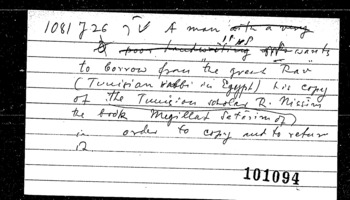 1081 J26 A man with a very
poor handwriting wants
to borrow from "the great Rav"
(Tunisian rabbi in Egypt) his copy
of the Tunisian scholar R. Nissim
the book Megillat Setarim of)
in order to copy and to return
it
101094